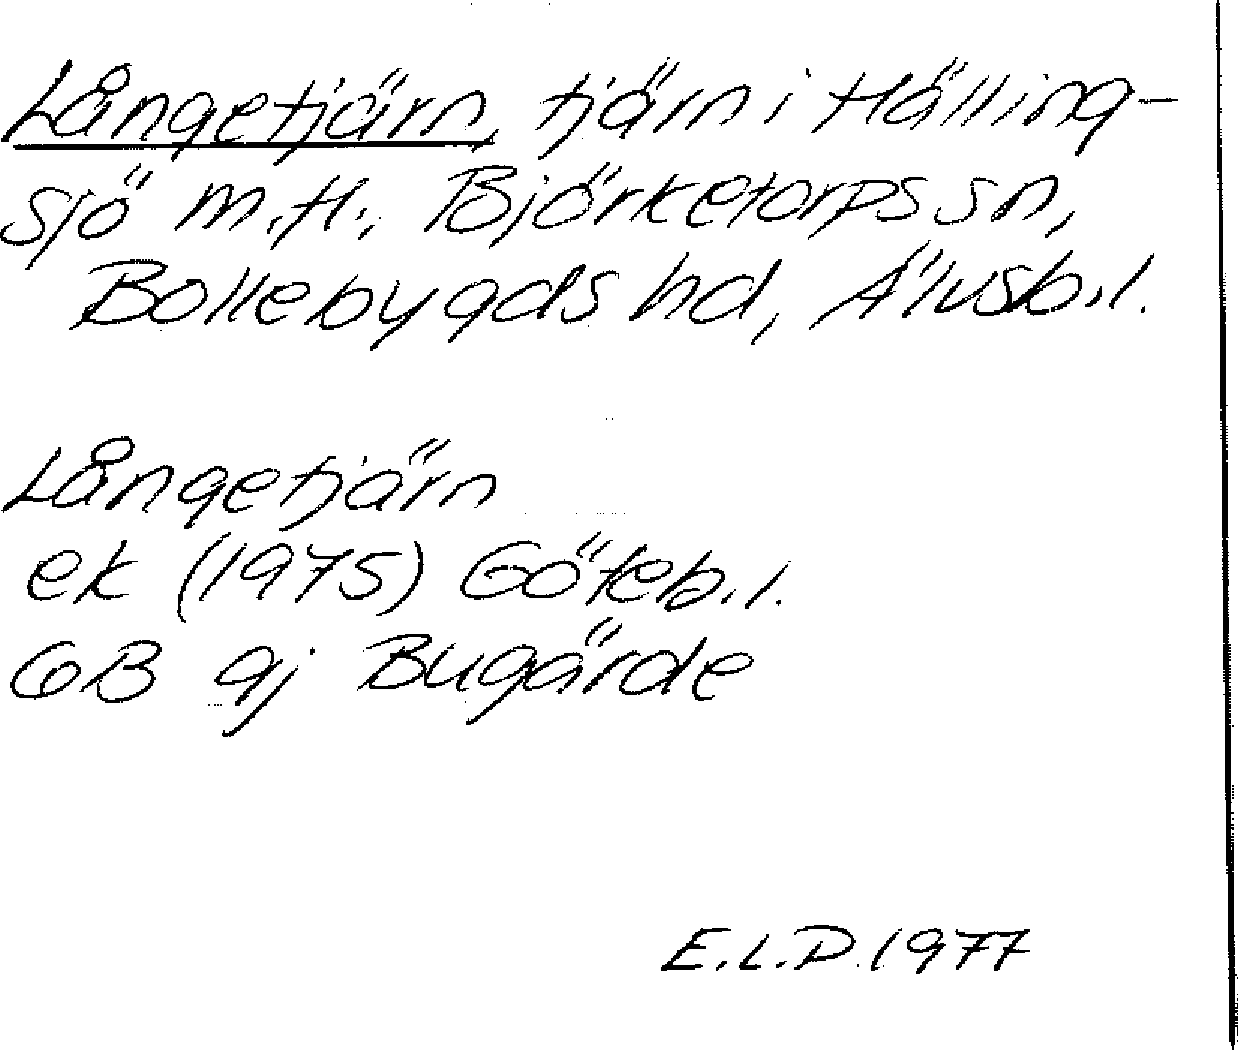 Långetjärn, tjärn i Hälling-
sjö m.fl., Björketorps sn,
Bollebygds hd, Älvsb.l.
Långetjärn
ek (1975) Göteb.l.
GB gj Bugärde
E.L.D. 1977